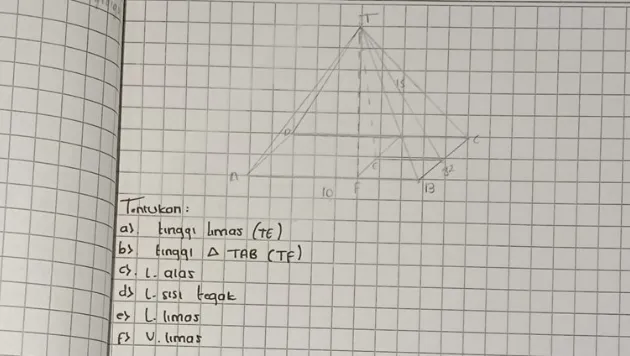 T
15
D
C
E
A
10
F
B
Tentukan:
a). tinggi limas (TE)
b) tinggi Δ TAB (TF)
c). L. alas
d) L. sisi tegak
e) L. limas
f) V. limas